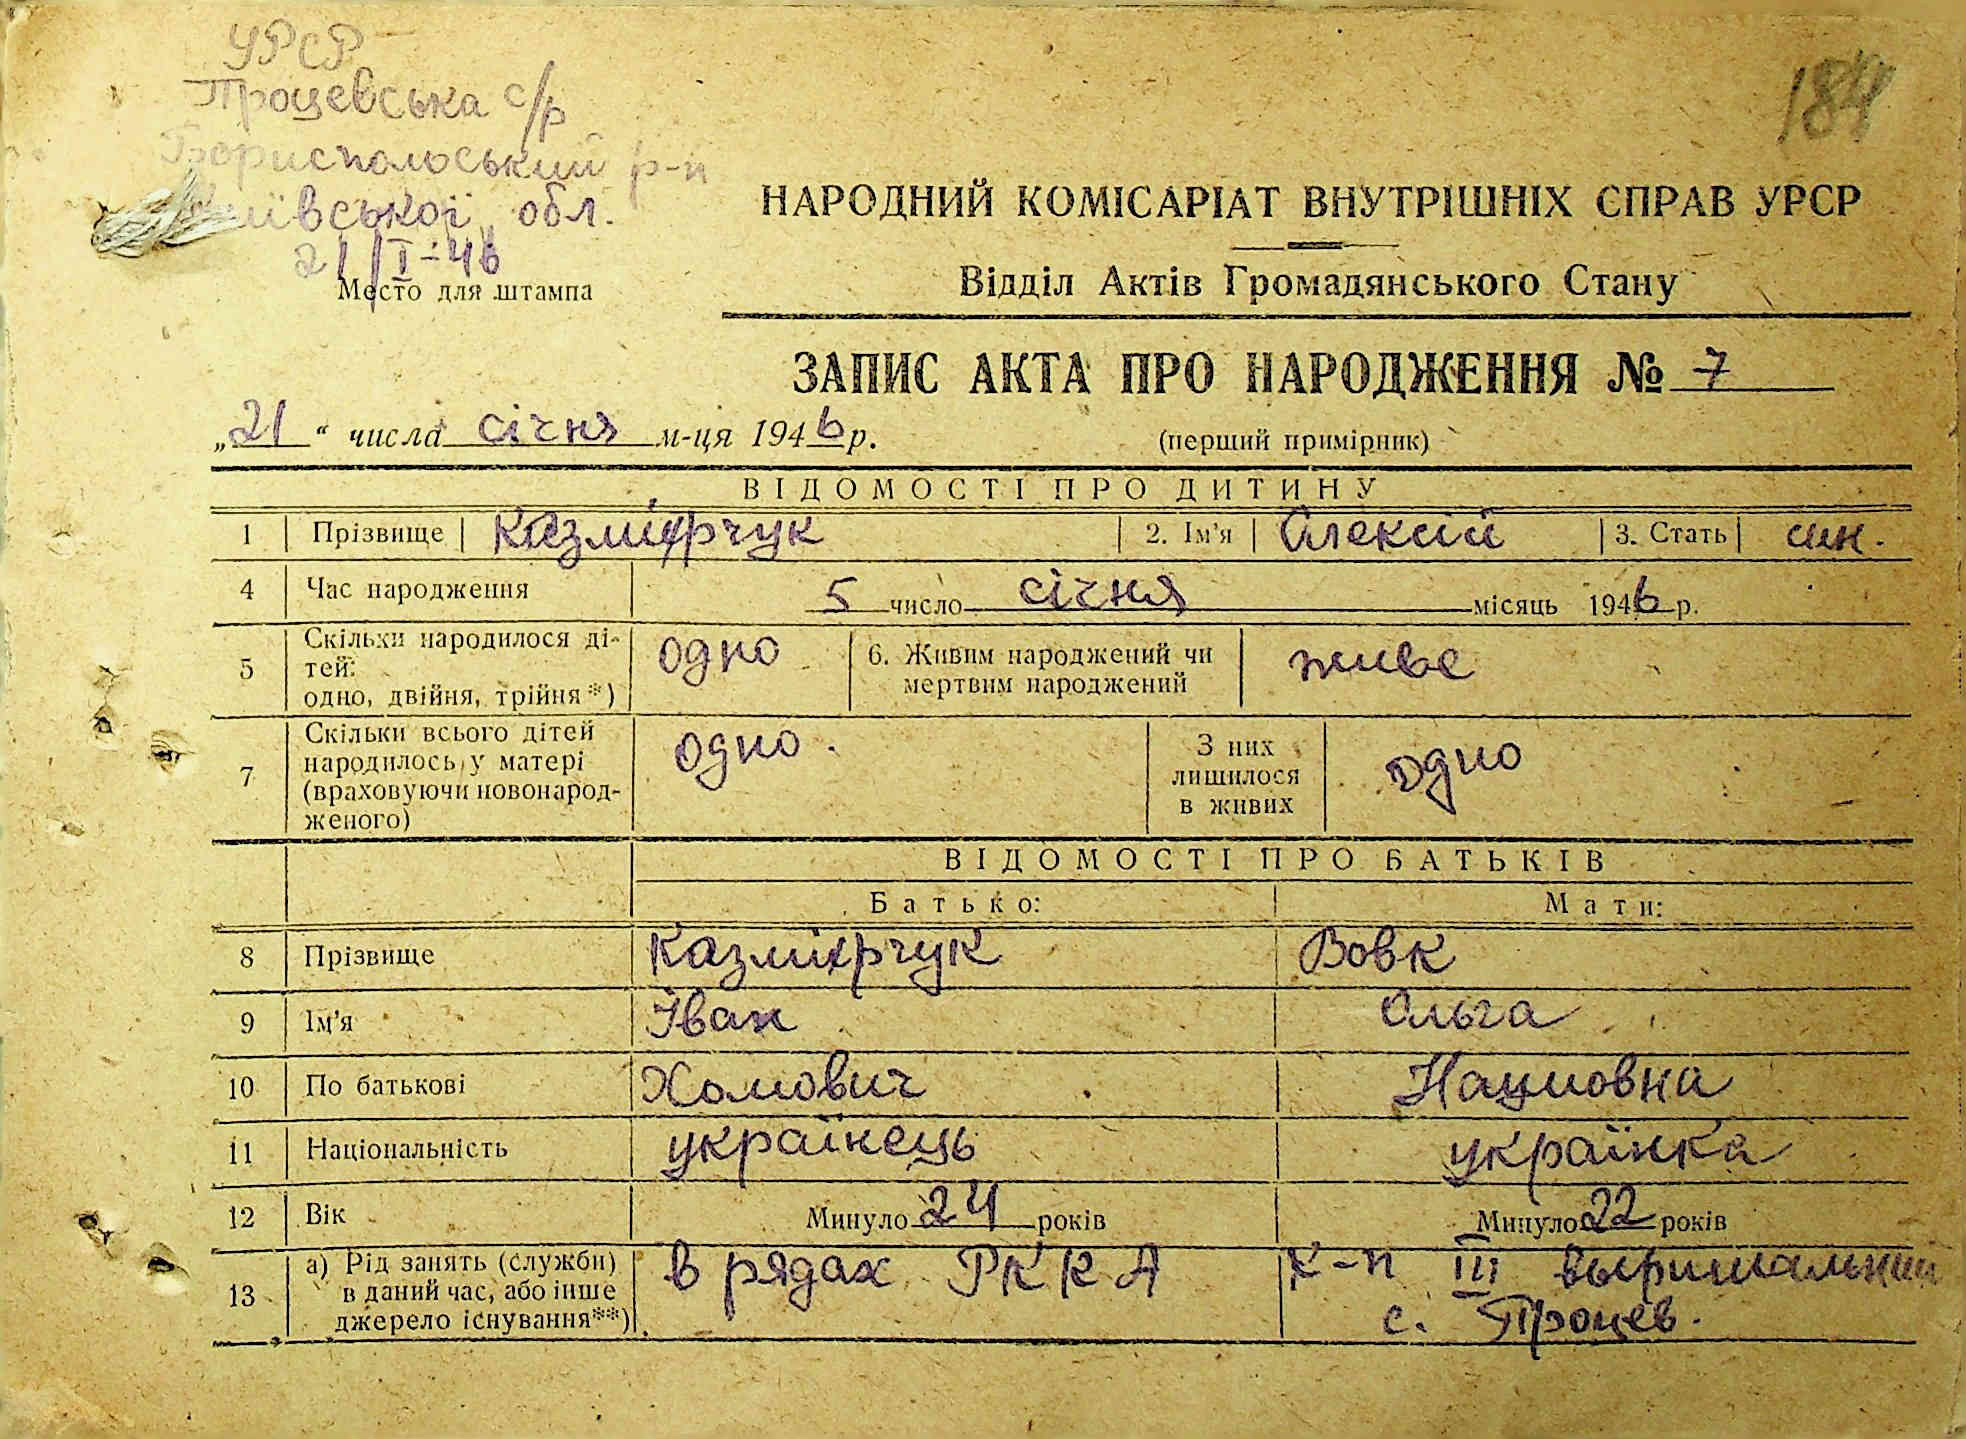 УРСР
Процевська с/р
Бориспольський р-н
Київської обл.
21/I-46
Место для штампа
184
НАРОДНИЙ КОМІСАРІАТ ВНУТРІШНІХ СПРАВ УРСР
Відділ Актів Громадянського Стану
ЗАПИС АКТА ПРО НАРОДЖЕННЯ № 7
„21“ числа січня м-ця 1946 р.
(перший примірник)
ВІДОМОСТІ ПРО ДИТИНУ
1 Прізвище Казмірчук 2. Ім'я Олексій 3. Стать син.
4 Час народження 5 число січня місяць 1946 р.
5 Скільки народилося ді-
тей:
одно, двійня, трійня*) одно
6. Живим народжений чи
мертвим народжений живе
7 Скільки всього дітей
народилось у матері
(враховуючи новонарод-
женого) одно.
З них
лишилося
в живих одно
ВІДОМОСТІ ПРО БАТЬКІВ
Батько: Мати:
8 Прізвище Казмірчук Вовк
9 Ім'я Іван Ольга
10 По батькові Хомович Наумовна
11 Національність українець українка
12 Вік Минуло 24 років Минуло 22 років
13 а) Рід занять (служби)
в даний час, або інше
джерело існування**)
в рядах РККА
к-п III
с. Процев.